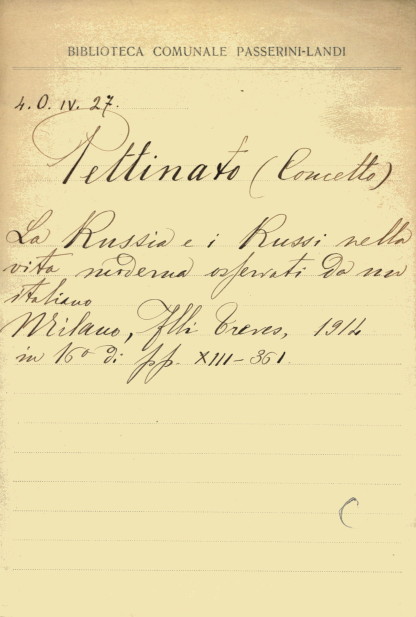 BIBLIOTECA COMUNALE PASSERINI-LANDI
4.O.IV.27.
Pettinato (Concetto)
La Russia e i Russi nella
vita moderna osservati da un
italiano
Milano, Flli Treves, 1914
in 16° di pp. XIII-361